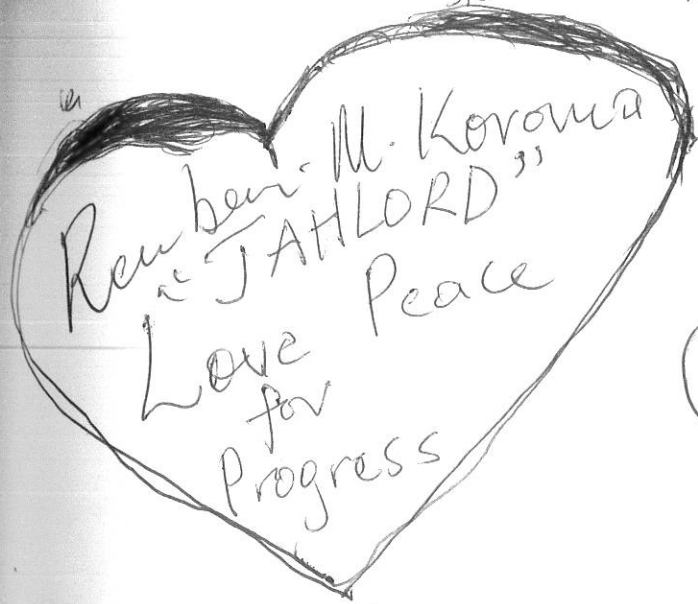 Reuben. M. Koroma
"JAHLORD"
Love Peace
for
Progress